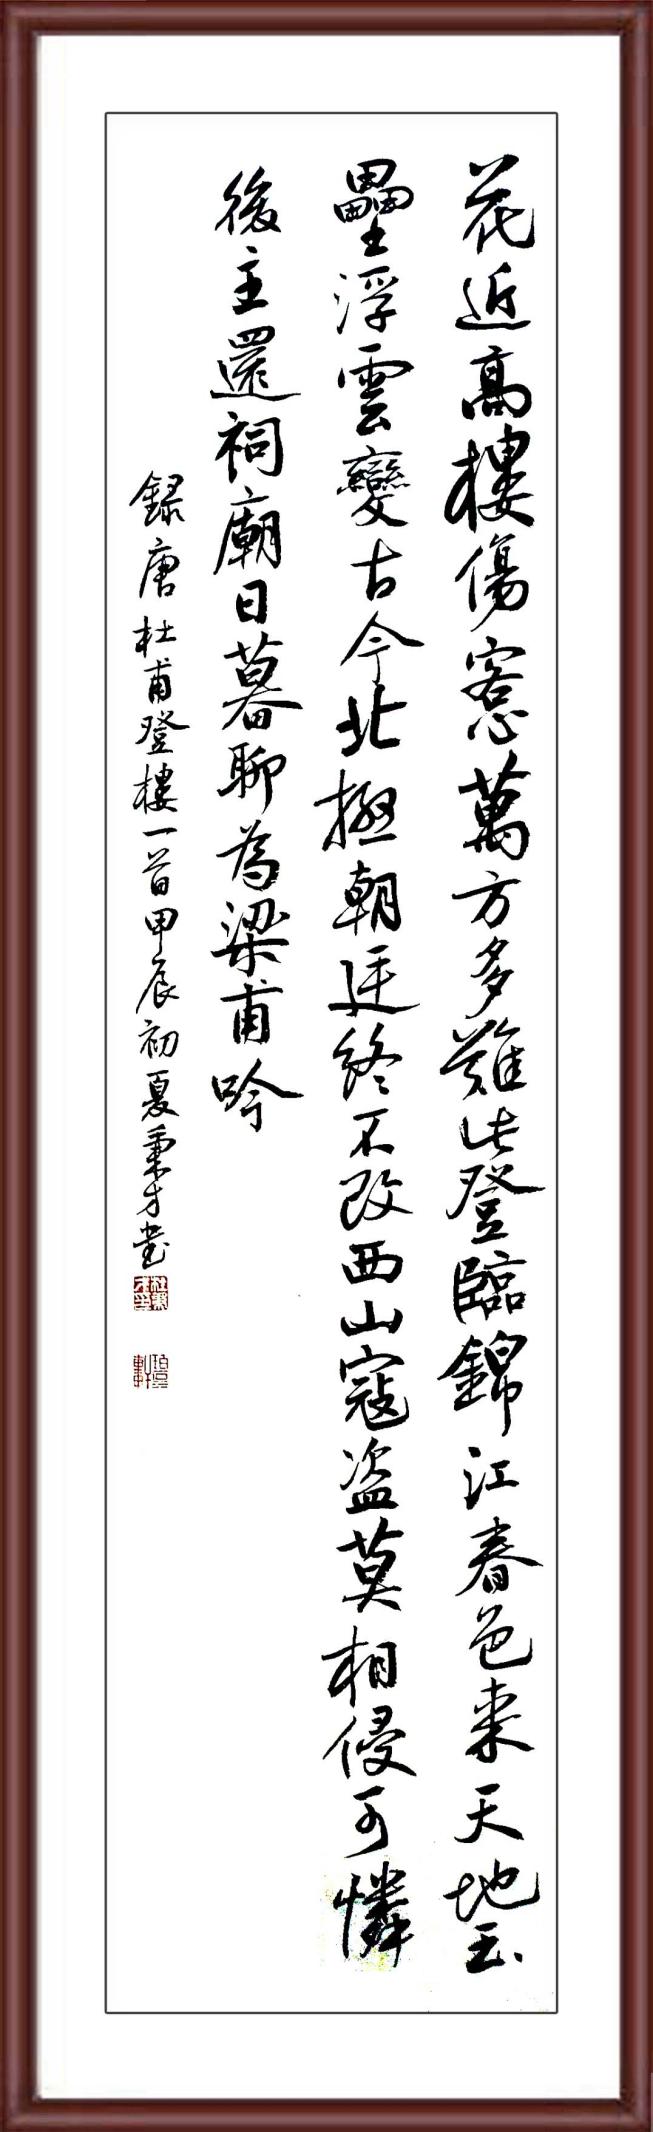 花近高樓傷客心萬方多難此登臨錦江春色来天地玉
壘浮雲變古今北極朝廷終不改西山寇盗莫相侵可憐
後主還祠廟日暮聊為梁甫吟
録唐杜甫登樓一首甲辰初夏秉才書